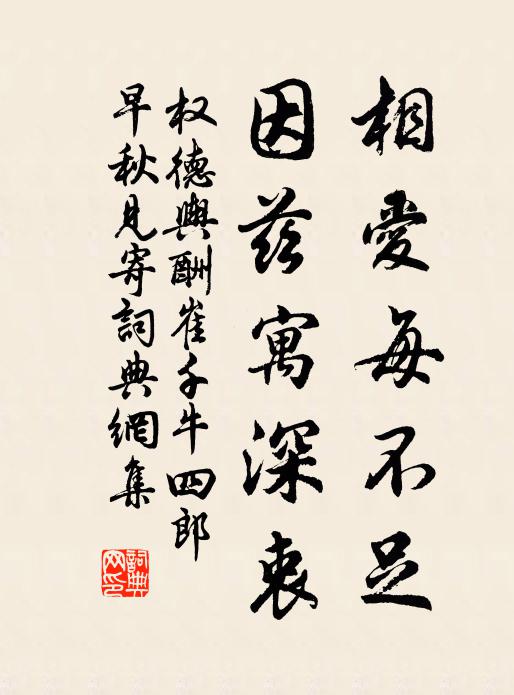 相愛每不足
因兹寓深衷
权德輿酬崔千牛四郎
早秋見寄詞典網集
詞典
网印